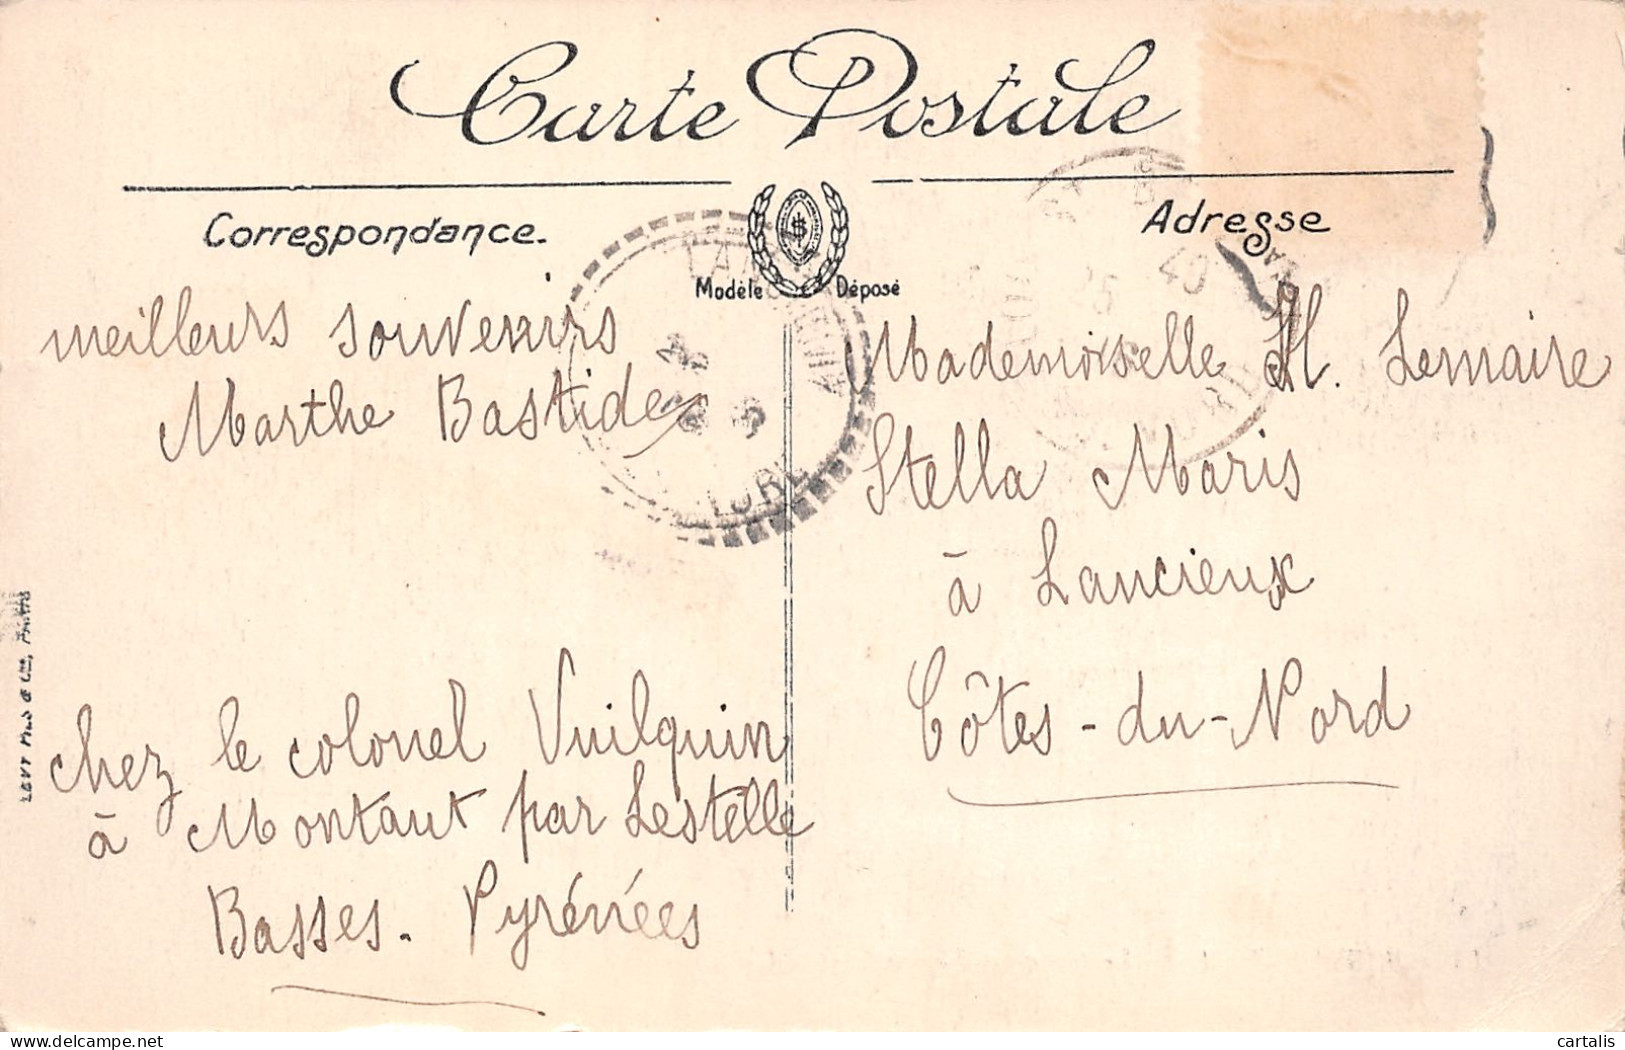 Carte Postale
Correspondance.
Adresse
Modèle Déposé
meilleurs souvenirs
Marthe Bastide
chez le colonel Vuilquin
à Montaut par Lestelle
Basses-Pyrénées
Mademoiselle H. Lemaire
Stella Maris
à Lancieux
Côtes-du-Nord
LEVY FILS & Cie, PARIS
delcampe.net
cartalis